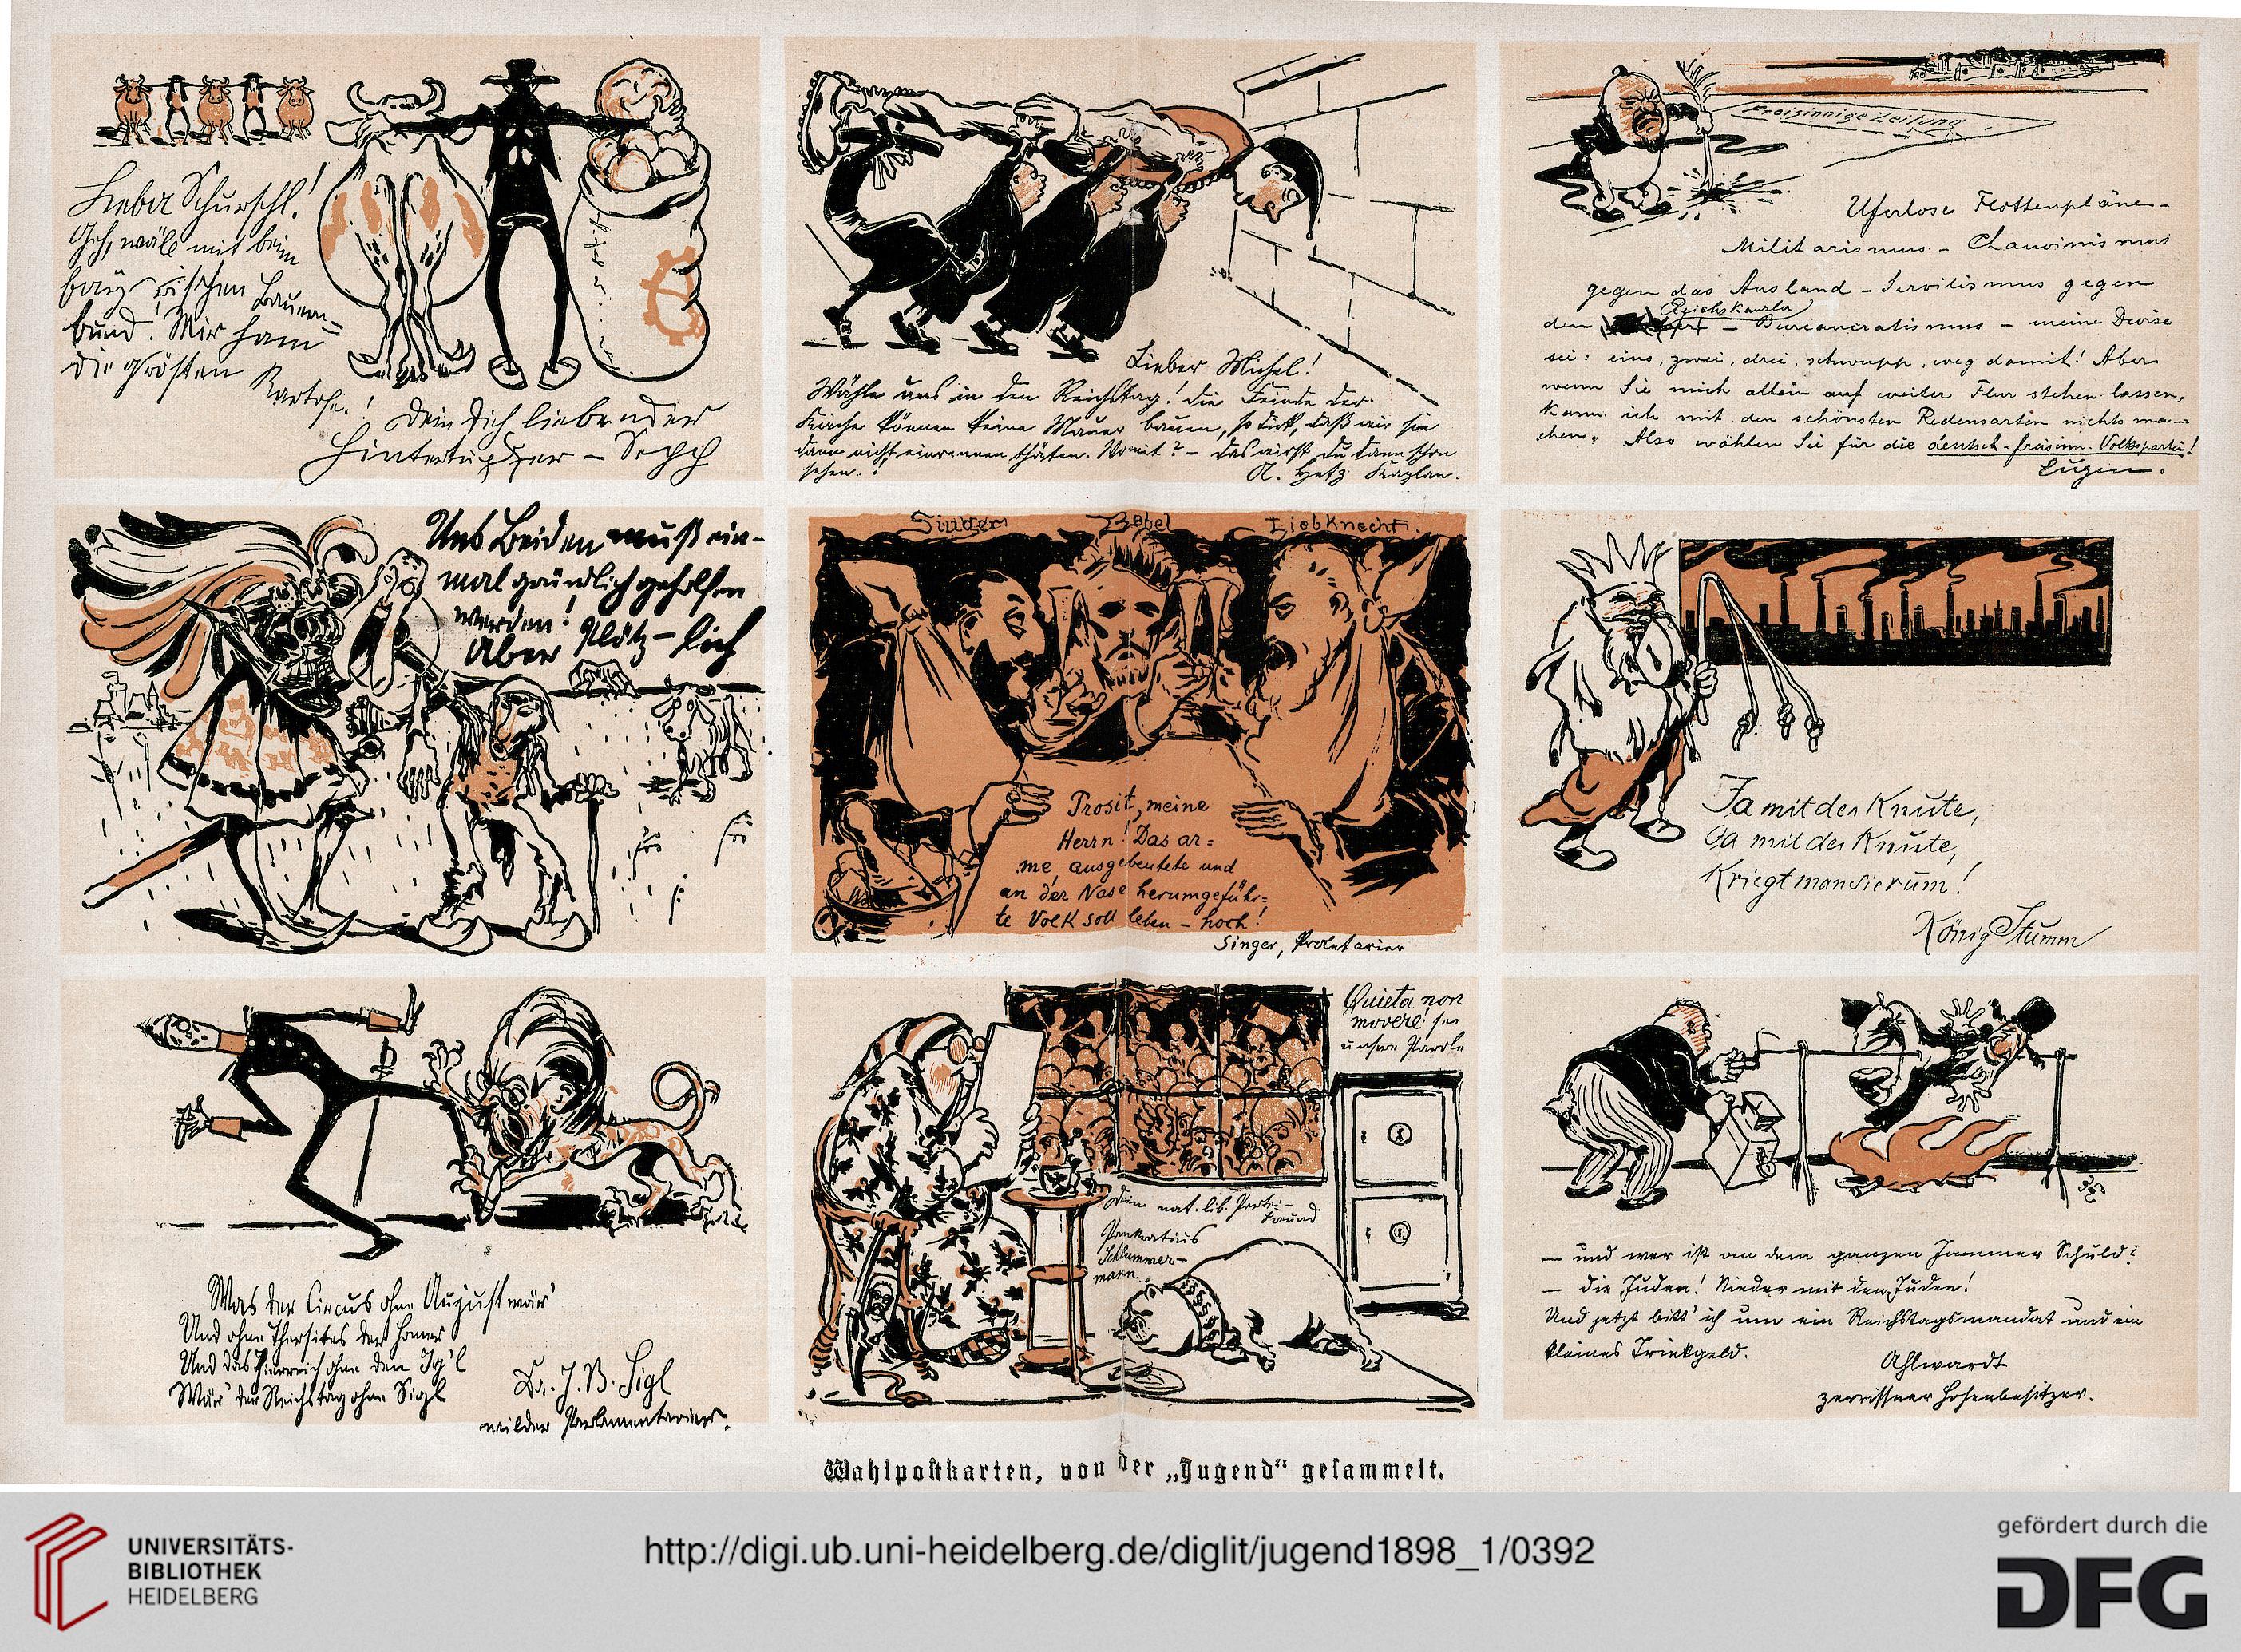 Lieber Schurschl!
Geh, wähl mit beim
bayrischen Bauern-
bund! Mir ham
die größten
Kartofe.!
Dein Dich liebender
Hintertupfer – Sepp
Lieber Michel!
Wähle uns in den Reichstag! die Feinde der
Kirche können keine Mauer bauen, so dick, daß wir sie
dann nicht einrennen thäten. Womit? – das wirst Du dann schon
sehen.!
A. Hetz Kaplan.
Freisinnige Zeitung
Uferlose Flottenpläne –
Militarismus – Chauvinismus
gegen das Ausland – Servilismus gegen
Reichskanzler
den – Bureaucratismus – meine Devise
sei: eins, zwei, drei, schwupp, weg damit! Aber
wenn Sie mich allein auf weiter Flur stehen lassen,
kann ich mit den schönsten Redensarten nichts ma-
chen. Also wählen Sie für die deutsch-freisinn. Volkspartei!
Eugen.
Uns Beiden muß ein-
mal gründlich geholfen
werden!
Aber plötz-lich
Singer Bebel Liebknecht.
Prosit, meine
Herrn! Das ar=
me, ausgebeutete und
an der Nase herumgeführ=
te Volk soll leben – hoch!
Singer, Proletarier
Ja mit der Knute,
Ja mit der Knute,
Kriegt man sie rum!
König Stumm
Was der Circus ohne August wär'
Und ohne Thersites der Homer
Und das Thierreich ohne den Ig'l
Wär' der Reichstag ohne Sigl
Dr. J. B. Sigl
wilder Parlamentarier.
Quieta non
movere! sei
unsere Parole
Dein nat. lib. Partei-
freund
Pankratius
Schlummer-
mann.
– und wer ist an dem ganzen Jammer Schuld?
– die Juden! Nieder mit den Juden!
Und jetzt bitt' ich um ein Reichstagsmandat und ein
kleines Trinkgeld.
Ahlwardt
zerrissner Hosenbesitzer.
Wahlpostkarten, von der „Jugend“ gesammelt.
UNIVERSITÄTS-
BIBLIOTHEK
HEIDELBERG
http://digi.ub.uni-heidelberg.de/diglit/jugend1898_1/0392
gefördert durch die
DFG